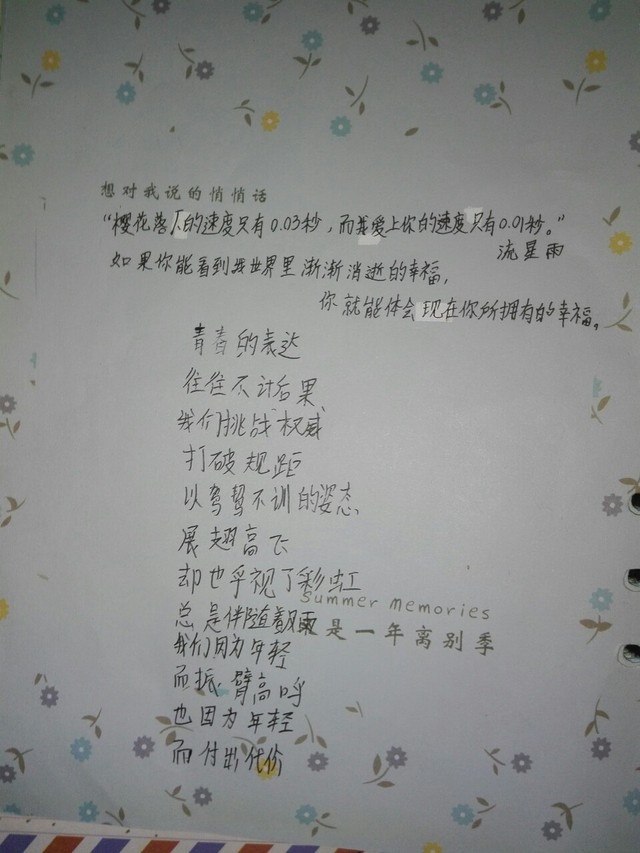 想对我说的悄悄话
“樱花落下的速度只有0.03秒，而我爱上你的速度只有0.01秒。”
流星雨
如果你能看到我世界里渐渐消逝的幸福，
你就能体会现在你所拥有的幸福。
青春的表达
往往不计后果
我们挑战权威
打破规距
以驾鸶不训的姿态
展翅高飞
却也乎视了彩虹
Summer memories
总是伴随着风雨
又是一年离别季
我们因为年轻
而振臂高呼
也因为年轻
而付出代价